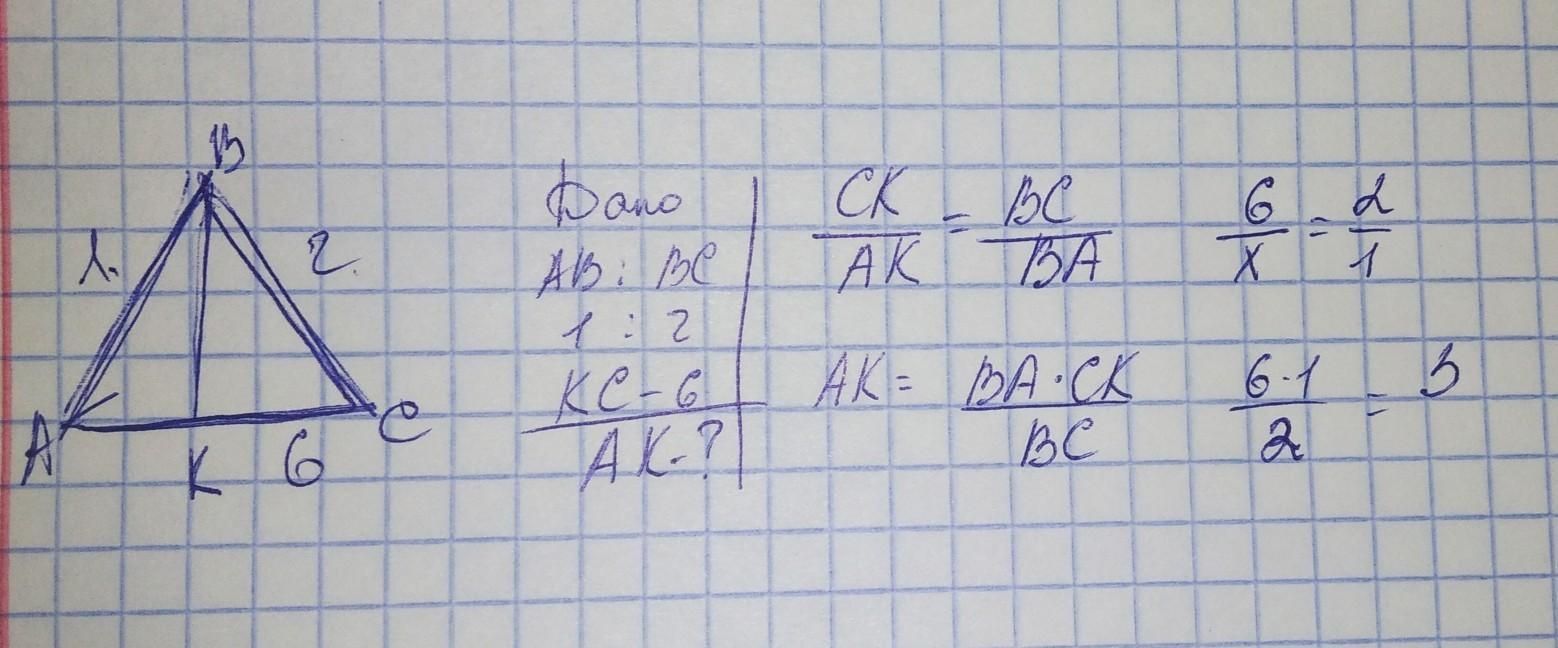 B
1.
2.
A
K
6
C
Дано
AB : BC
1 : 2
KC - 6
AK - ?
CK/AK = BC/BA
6/x = 2/1
AK = BA · CK/BC
6 · 1/2 = 3